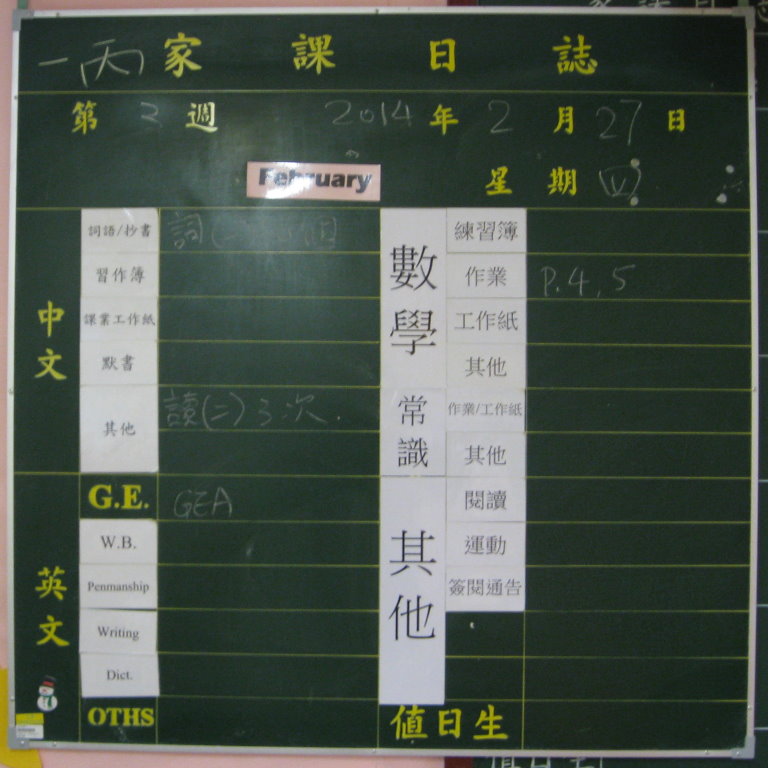 一(丙)家課日誌
第 週 2014年 2月27日
February
星期(四)
中文
詞語/抄書 詞
習作簿
課業工作紙
默書
其他 讀(二)3次.
英文
G.E. GEA
W.B.
Penmanship
Writing
Dict.
OTHS
數學
練習簿
作業 P.4,5
工作紙
其他
常識
作業/工作紙
其他
其他
閱讀
運動
簽閱通告
值日生